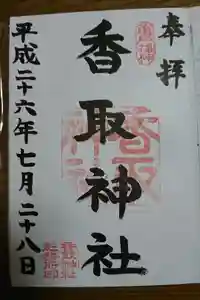 奉拝
香取神社
平成二十六年七月二十八日